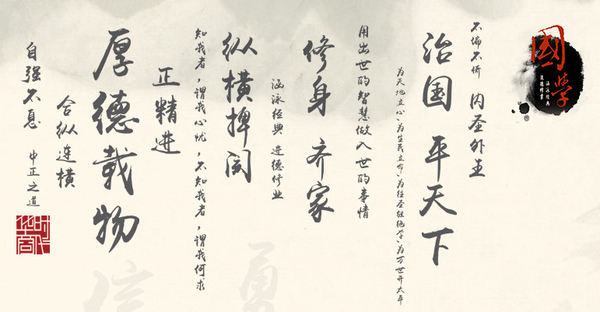 國學
涵泳經典
不偏不倚 内圣外王
治国 平天下
为天地立心、为生民立命、为往圣继绝学、为万世开太平
用出世的智慧做入世的事情
修身 齐家
涵泳经典 进德修业
纵横捭阖
知我者，谓我心忧，不知我者，谓我何求
正精进
厚德载物
合纵连横
自强不息 中正之道
时代华商
信